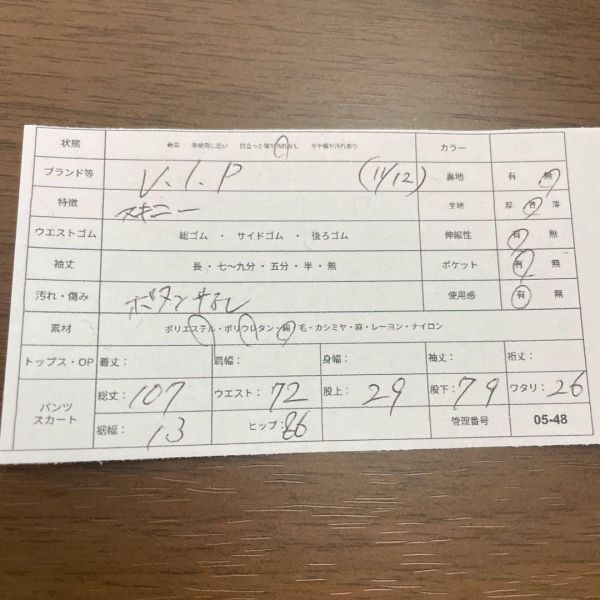 状態 新品 未使用に近い 目立った傷や汚れなし やや傷や汚れあり カラー
ブランド等 V.I.P (11/12) 裏地 有 無
特徴 スキニー 生地 厚 普 薄
ウエストゴム 総ゴム ・ サイドゴム ・ 後ろゴム 伸縮性 有 無
袖丈 長・七〜九分・五分・半・無 ポケット 有 無
汚れ・傷み ボタンサビ 使用感 有 無
素材 ポリエステル・ポリウレタン・綿・毛・カシミヤ・麻・レーヨン・ナイロン
トップス・OP 着丈: 肩幅: 身幅: 袖丈: 裄丈:
パンツ スカート 総丈: 107 ウエスト: 72 股上: 29 股下: 79 ワタリ: 26
裾幅: 13 ヒップ: 86 管理番号 05-48